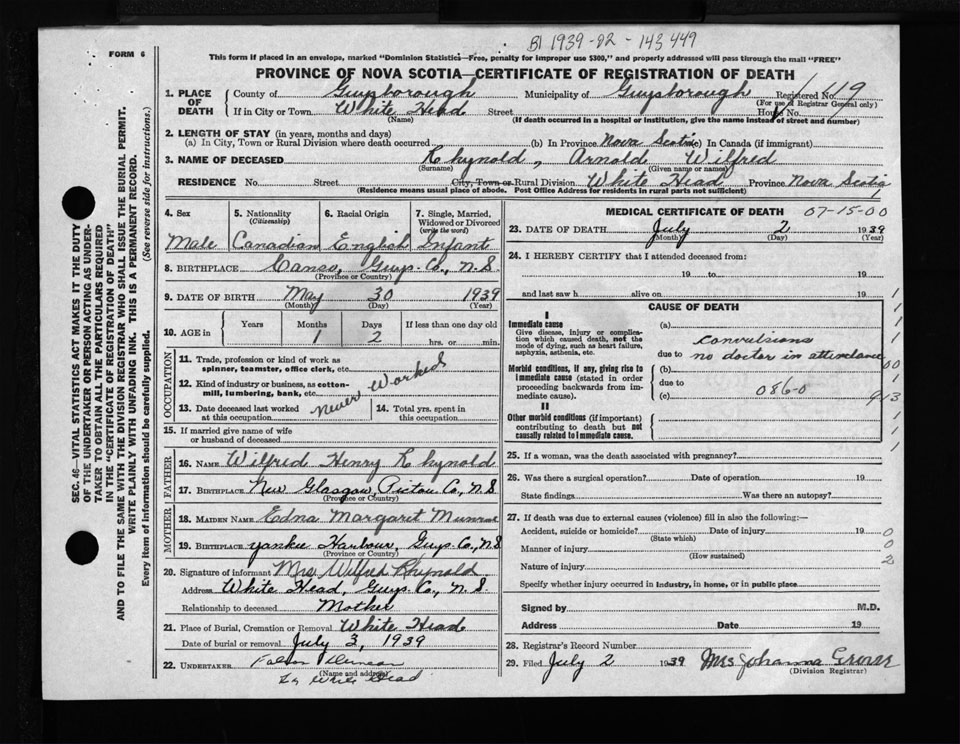 BI 1939-02-143449
FORM 6
This form if placed in an envelope, marked "Dominion Statistics—Free, penalty for improper use $300," and properly addressed will pass through the mail "FREE"
PROVINCE OF NOVA SCOTIA—CERTIFICATE OF REGISTRATION OF DEATH
1. PLACE OF DEATH
County of Guysborough Municipality of Guysborough Registered No. 119
(For use of Registrar General only)
If in City or Town White Head Street House No.
(Name) (If death occurred in a hospital or institution, give the name instead of street and number)
2. LENGTH OF STAY (in years, months and days)
(a) In City, Town or Rural Division where death occurred (b) In Province Nova Scotia (c) In Canada (if immigrant)
3. NAME OF DECEASED Rhynold, Arnold Wilfred
(Surname) (Given name or names)
RESIDENCE No. Street City, Town or Rural Division White Head Province Nova Scotia
(Residence means usual place of abode. Post Office Address for residents in rural parts not sufficient)
4. Sex 5. Nationality (Citizenship) 6. Racial Origin 7. Single, Married, Widowed or Divorced (write the word)
Male Canadian English Infant
8. BIRTHPLACE Canso, Guys. Co., N.S.
(Province or Country)
9. DATE OF BIRTH May 30 1939
(Month) (Day) (Year)
10. AGE in Years Months Days If less than one day old
1 2 hrs. or min.
OCCUPATION
11. Trade, profession or kind of work as spinner, teamster, office clerk, etc.
12. Kind of industry or business, as cotton-mill, lumbering, bank, etc.
Never Worked
13. Date deceased last worked at this occupation 14. Total yrs. spent in this occupation
15. If married give name of wife or husband of deceased
FATHER
16. NAME Wilfred Henry Rhynold
17. BIRTHPLACE New Glasgow, Pictou Co., N.S
(Province or Country)
MOTHER
18. MAIDEN NAME Edna Margaret Munroe
19. BIRTHPLACE Yankee Harbour, Guys. Co., N.S
(Province or Country)
20. Signature of informant Mrs Wilfred Rhynold
Address White Head, Guys. Co., N.S.
Relationship to deceased Mother
21. Place of Burial, Cremation or Removal White Head
Date of burial or removal July 3, 1939
22. UNDERTAKER
(Name and address)
Head
MEDICAL CERTIFICATE OF DEATH 07-15-00
23. DATE OF DEATH July 2 1939
(Month) (Day) (Year)
24. I HEREBY CERTIFY that I attended deceased from:
19 to 19
and last saw h alive on 19
CAUSE OF DEATH
I
Immediate cause
Give disease, injury or complication which caused death, not the mode of dying, such as heart failure, asphyxia, asthenia, etc.
(a) Convulsions
due to no doctor in attendance
Morbid conditions, if any, giving rise to immediate cause (stated in order proceeding backwards from immediate cause).
(b)
due to 086-0
(c)
II
Other morbid conditions (if important) contributing to death but not causally related to immediate cause.
25. If a woman, was the death associated with pregnancy?
26. Was there a surgical operation? Date of operation 19
State findings Was there an autopsy?
27. If death was due to external causes (violence) fill in also the following:—
Accident, suicide or homicide? Date of injury 19
(State which)
Manner of injury
(How sustained)
Nature of injury
Specify whether injury occurred in industry, in home, or in public place
Signed by M.D.
Address Date 19
28. Registrar's Record Number
29. Filed July 2 1939 Mrs Johanna
(Division Registrar)
SEC. 46—VITAL STATISTICS ACT MAKES IT THE DUTY
OF THE UNDERTAKER OR PERSON ACTING AS UNDER-
TAKER TO OBTAIN ALL THE PARTICULARS REQUIRED
IN THE "CERTIFICATE OF REGISTRATION OF DEATH"
AND TO FILE THE SAME WITH THE DIVISION REGISTRAR WHO SHALL ISSUE THE BURIAL PERMIT.
WRITE PLAINLY WITH UNFADING INK. THIS IS A PERMANENT RECORD.
Every item of Information should be carefully supplied. (See reverse side for instructions.)